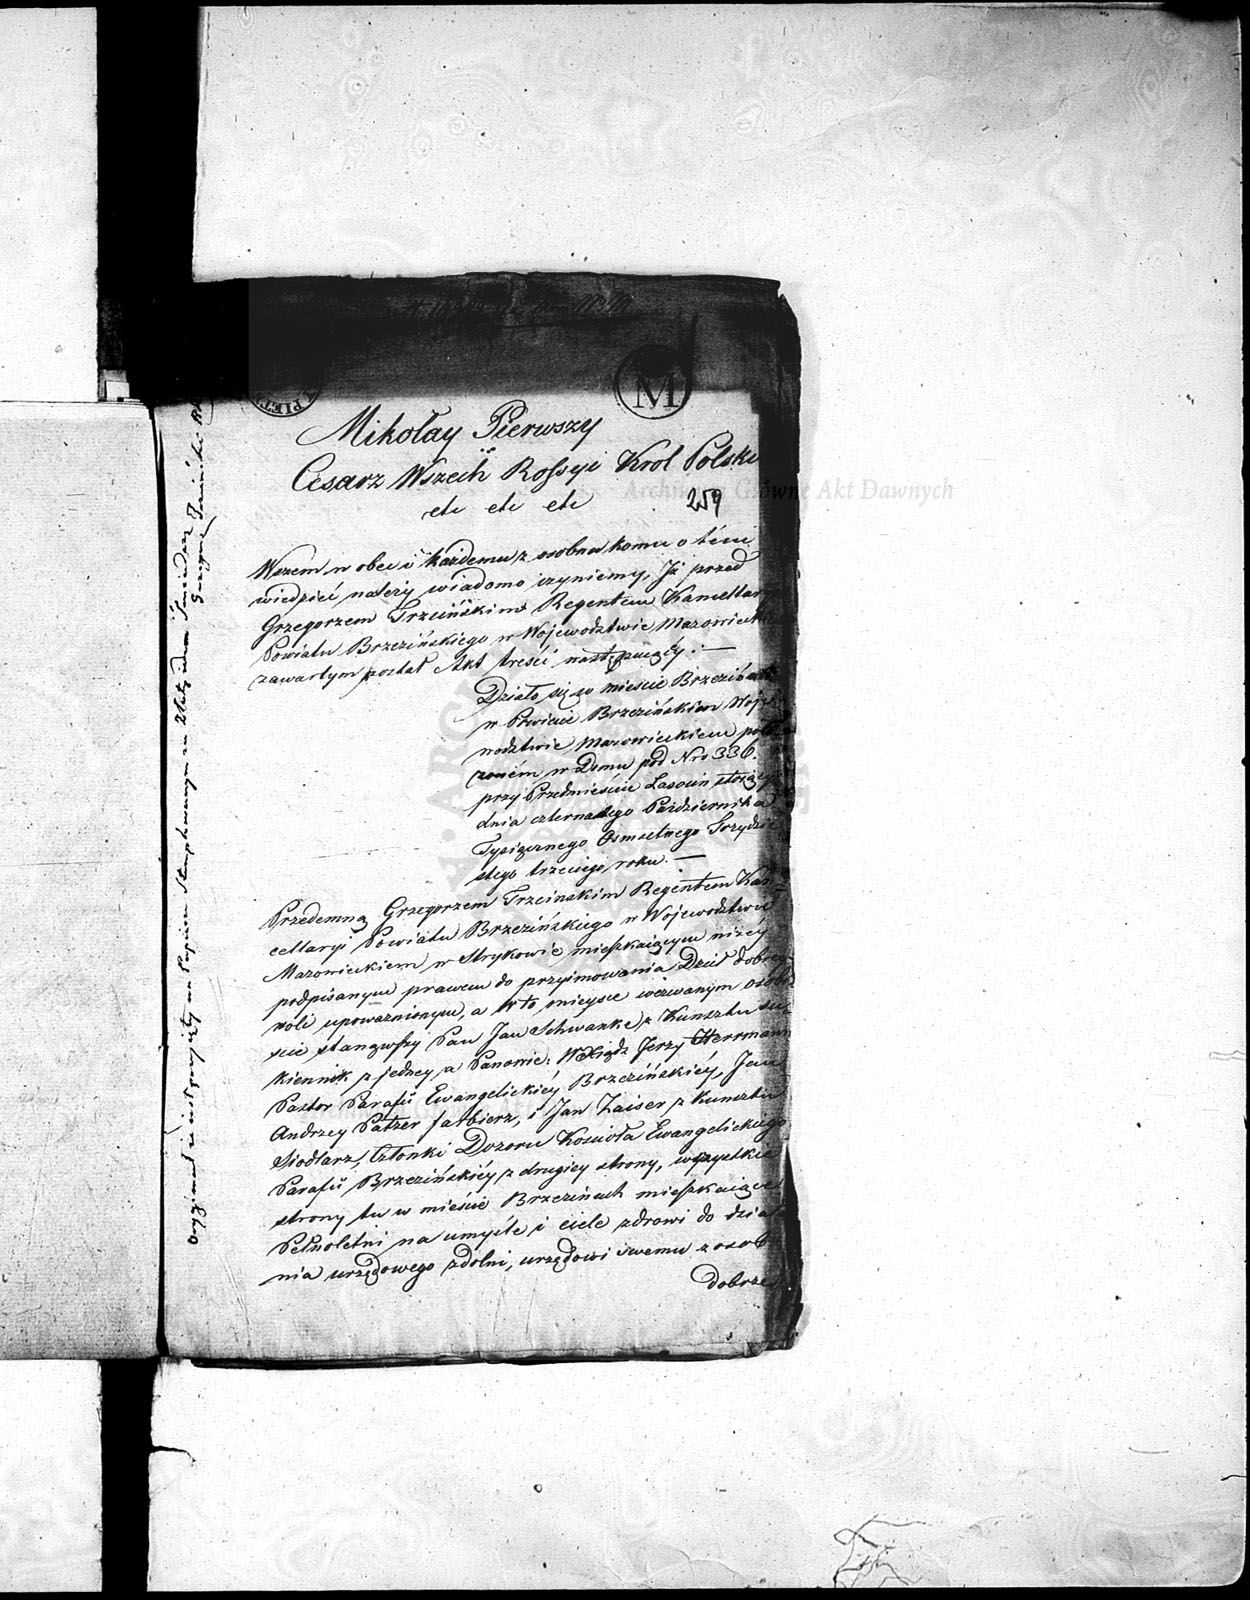 M
Mikołay Pierwszy
Cesarz Wszech Rossyi Krol Polski
etc etc etc
259
Archiwum Główne Akt Dawnych
Wszem w obec i każdemu z osobna komu o tém
wiedzieć należy wiadomo czyniemy, Jż przed
Grzegorzem Trzcińskim Regentem Kancellar
Powiatu Brzezińskiego w Województwie Mazowieck
zawartym został Akt treści następuiącéy: —
Działo się w mieście Brzezinach
w Powiecie Brzezińskim Woje
wodztwie Mazowieckiem poło
żoném w Domu pod Nro 336.
przy Przedmieściu Lasocin stoiącym
dnia czternastego Października
Tysiącznego Osmsetnego Trzydzie
stego trzeciego roku. —
Przedemną Grzegorzem Trzcinskim Regentem Kan
cellaryi Powiatu Brzezińskiego w Województwie
Mazowieckiem w Strykowie mieszkaiącym niżéy
podpisanym prawem do przyimowania Dzieł dobréy
woli upoważnionym, a w to mieysce wezwanym osobi
ście stanąwszy Pan Jan Schwanke z Kunsztu Su
kiennik z jednéy, a Panowie: W Xiądz Jerzy Herrmann
Pastor Parafii Ewangelickiéy Brzezińskiéy, Jan
Andrzey Patzer farbierz, i Jan Zaiser z Kunsztu
Siodlarz, Członki Dozoru Kościoła Ewangelickiego
Parafii Brzezińskiéy z drugiéy strony, wszystkie
strony tu w mieście Brzezinach mieszkaiące
Pełnoletni na umyśle i ciele zdrowi do dzia
nia urzędowego zdolni, urzędowi swemu z osob
dobrze